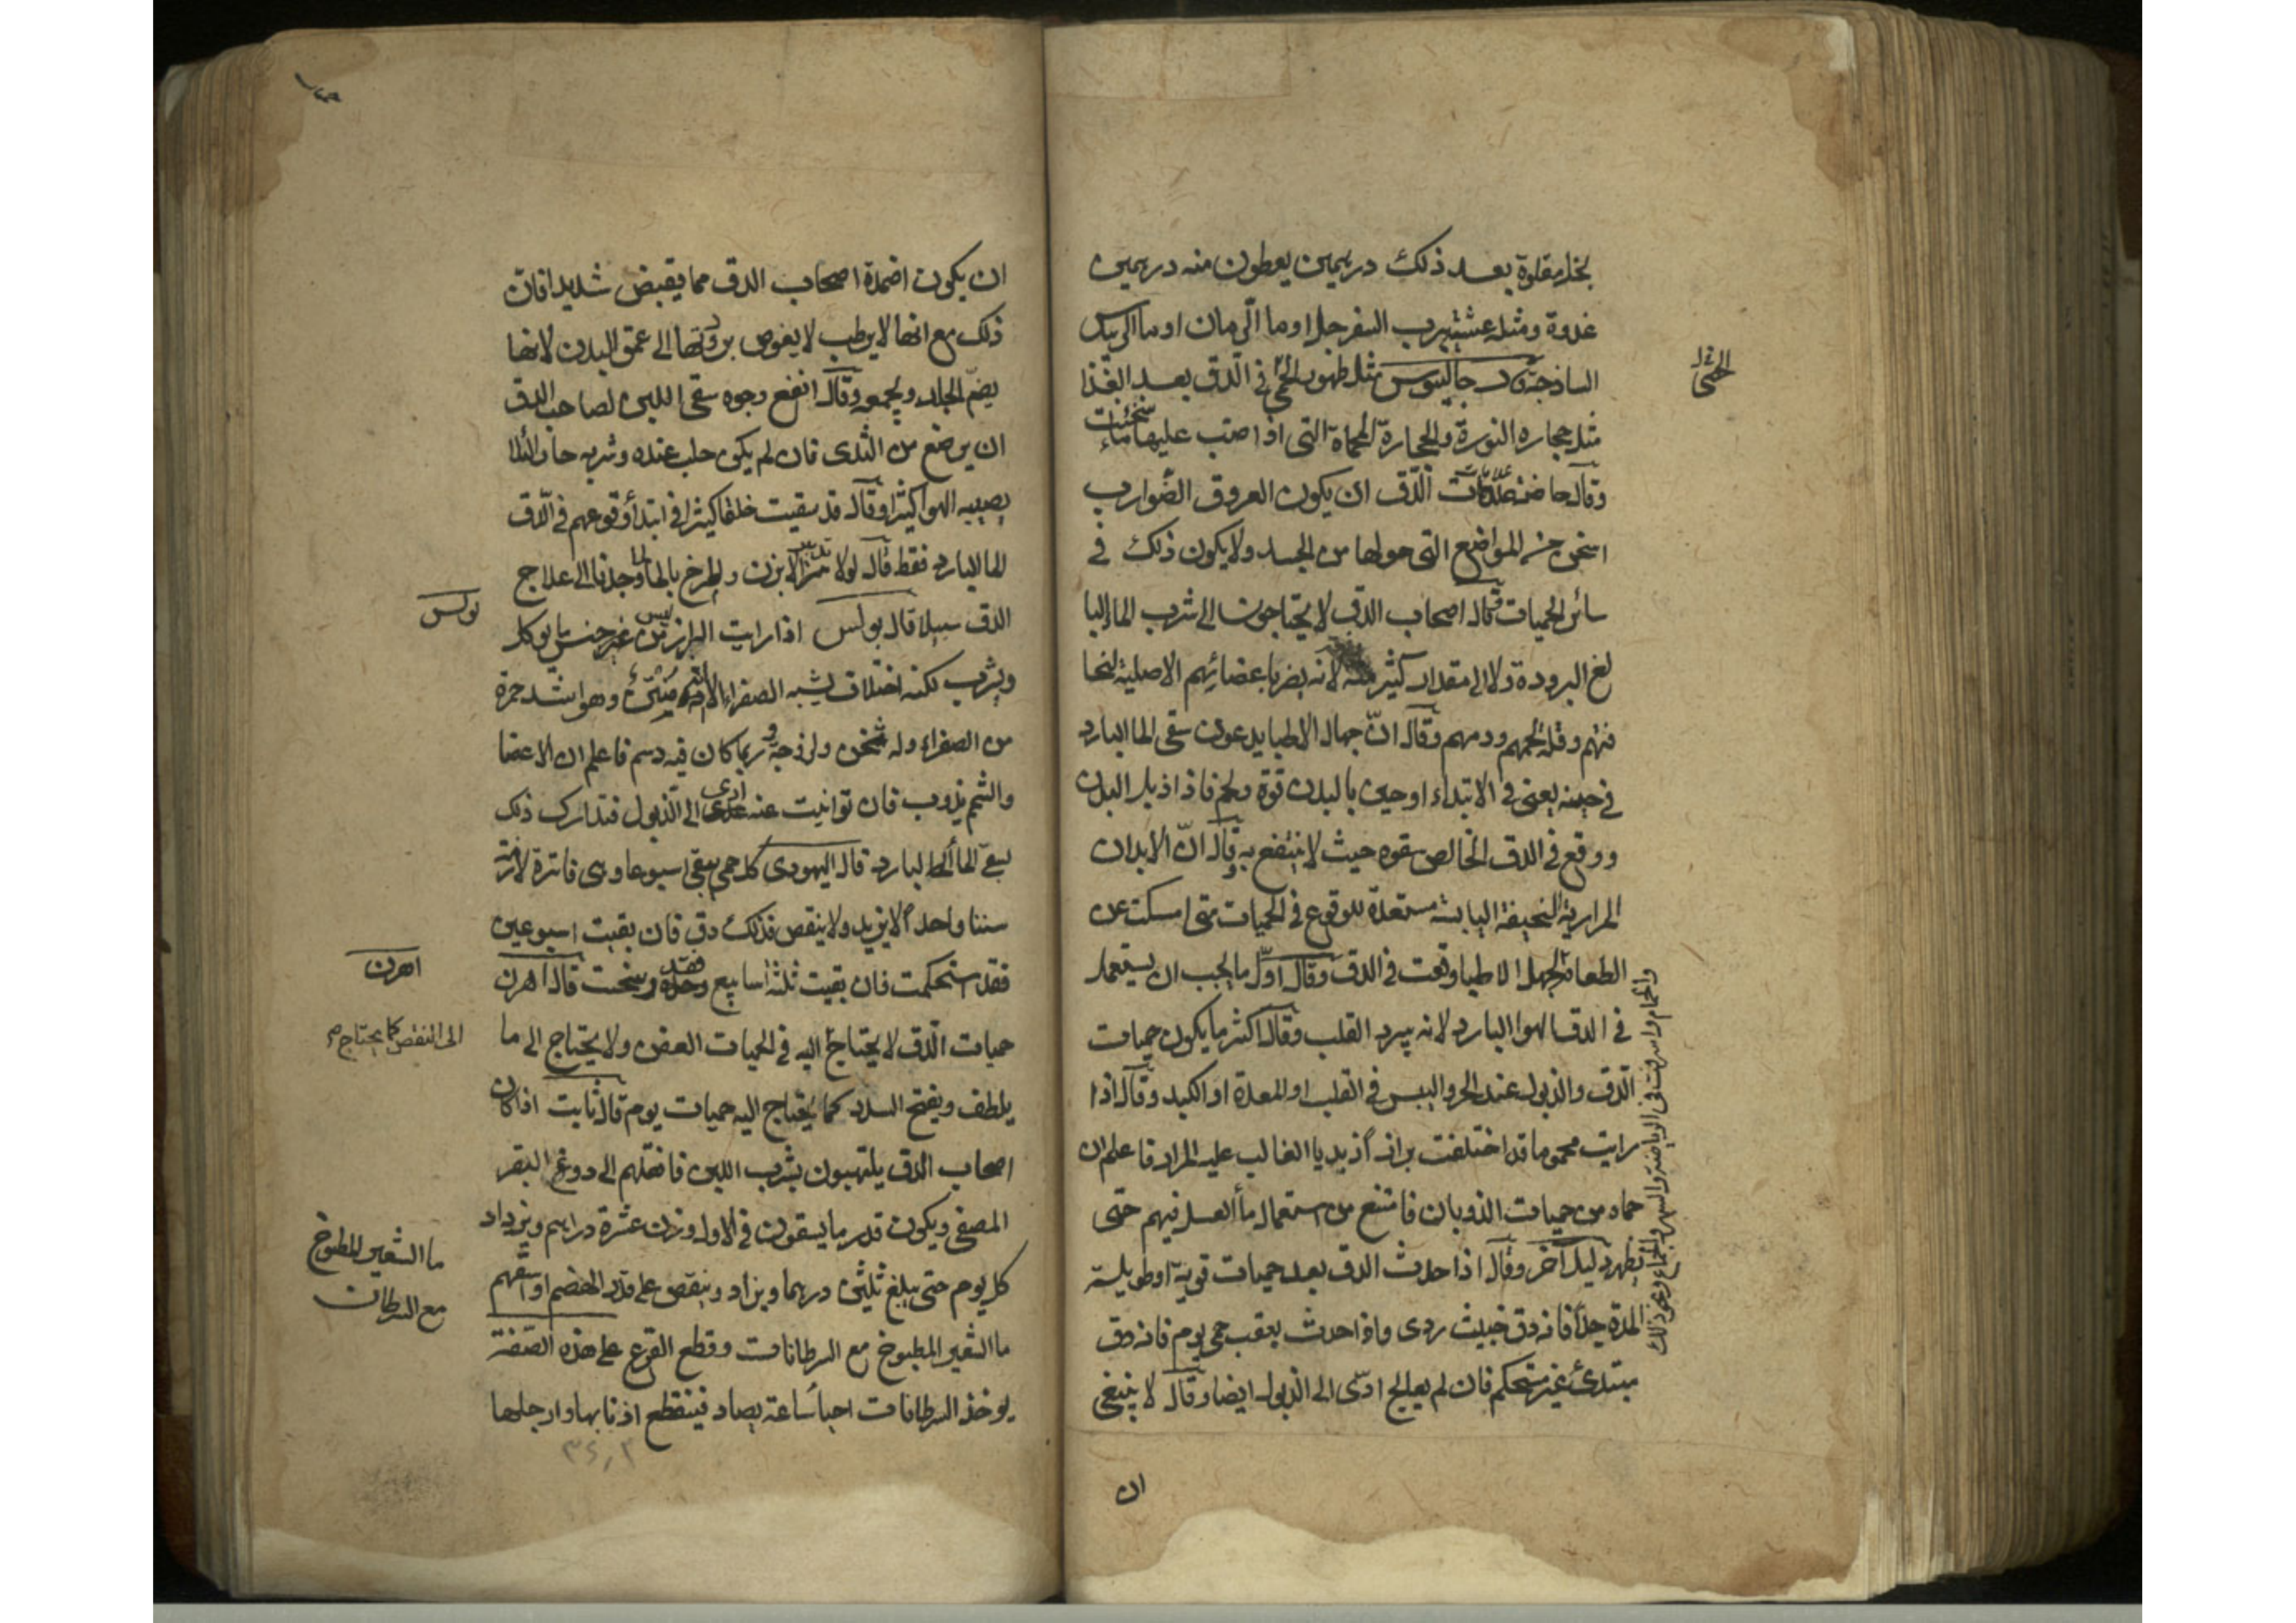 بخل مقلوة بعد ذلك درهمين يعطون منه درهمين
غدوة ومثله عشية برب السفرجل او ما الرمان او ما
الساذجة وقال جالينوس مثل ظهور الحمى في الدق بعد الغذا
مثل حجارة النورة والحجارة المحماة التى اذا صب عليها ماء سخنت
وقال علامات الدق ان يكون العروق الضوارب
اسخن من المواضع التى حولها من الجسد ولا يكون ذلك فى
سائر الحميات وقال اصحاب الدق لا يحتاجون الى شرب الماء البا
لغ البرودة ولا الى مقدار كثير منه لانه يضر باعضائهم الاصلية لنحا
فتهم وقلة لحمهم ودمهم وقال انّ جهال الاطبا يدعون سقى الما البارد
فى حينه يعنى فى الابتداء او حين بالبدن قوة ولحم فاذا ذبل البدن
ووقع فى الدق الخالص سقوه حيث لا ينتفع به وقال انّ الابدان
المرارية النحيفة اليابسة مستعدة للوقوع فى الحميات متى امسكت عن
الطعام لجهل الاطبا وقعت فى الدق وقال اوّل ما يجب ان يستعمل
فى الدق الهوا البارد لانه يبرد القلب وقال اكثر ما يكون حميات
الدق والذبول عند الحر واليبس فى القلب او المعدة او الكبد وقال اذا
رايت محموما قد اختلفت برازا زبديا الغالب عليه المرار فاعلم ان
حماه من حميات الذوبان فامتنع من استعمال ماء العسل فيهم حتى
يظهر دليل آخر وقال اذا حدث الدق بعد حميات قوية او طويلة
المدة جدا فانه دق خبيث ردى واذا حدث بعقب حمى يوم فانه دق
مبتدئ غير مستحكم فان لم يعالج ادّى الى الذبول ايضا وقال لا ينبغى
ان
ان يكون اضمدة اصحاب الدق مما يقبض شديدا فان
ذلك مع انها لا يرطب لا يغوص بردها الى عمق البدن لانها
يضمّ الجلد ويجمعه وقال انفع وجوه سقى اللبن لصاحب الدق
ان يرضع من الثدى فان لم يكن حلب عنده وشربه حارا لئلا
يصيبه الهوا كثيرا وقال قد سقيت خلقا كثيرا فى ابتدأ وقوعهم فى الدق
الما البارد فقط قال لولا الابزن والمرخ بالما وجدنا الى علاج
الدق سبيلا قال بولس اذا رايت البراز ليس من غير جنس ما يوكل
ويشرب لكنه اختلاف يشبه الصفراء الا انه منتن وهو اشد حمرة
من الصفراء وله ثخن ولزوجة وربما كان فيه دسم فاعلم ان الاعضا
والشحم يذوب فان توانيت عنه ادى الى الذبول فتدارك ذلك
بسقى الما البارد قال اليهودى كل حمى يبقى اسبوعا وهى فاترة لازمة
سننا واحدا لا يزيد ولا ينقص فذلك دق فان بقيت اسبوعين
فقد استحكمت فان بقيت ثلثة اسابيع فقد رسخت قال اهرن
حميات الدق لا يحتاج اليه فى الحميات العفن ولا يحتاج الى ما
يلطف ويفتح السدد كما يحتاج اليه حميات يوم قال ثابت اذا كان
اصحاب الدق يلتهبون بشرب اللبن فانقلهم الى دوغ البقر
المصفى ويكون قدر ما يسقون فى الاول وزن عشرة دراهم ويزداد
كل يوم حتى يبلغ ثلثين درهما ويزاد وينقص على قدر الهضم او اسقهم
ما الشعير المطبوخ مع السرطانات وقطع القرع على هذه الصفة
يوخذ السرطانات احيأ ساعة يصاد فينقطع اذنابها وارجلها
بولس
اهرن
الى النقص كما يحتاج
ما الشعير المطبوخ
مع السرطان